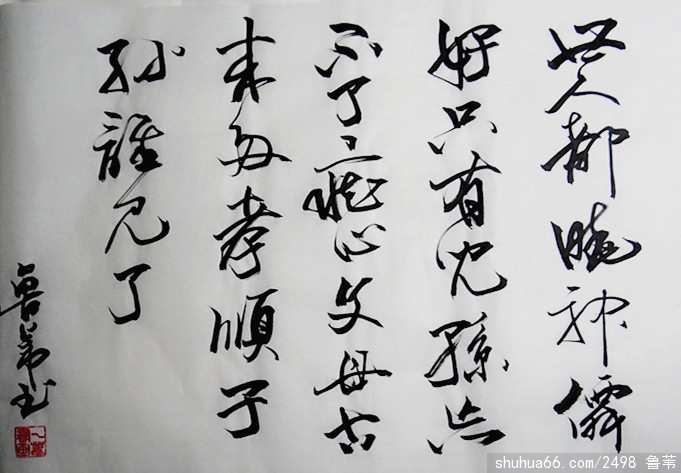 世人都曉神僊
好只有兒孫忘
不了癡心父母古
来多孝順子
孙誰见了
魯苇书
shuhua66.com/2498 鲁苇